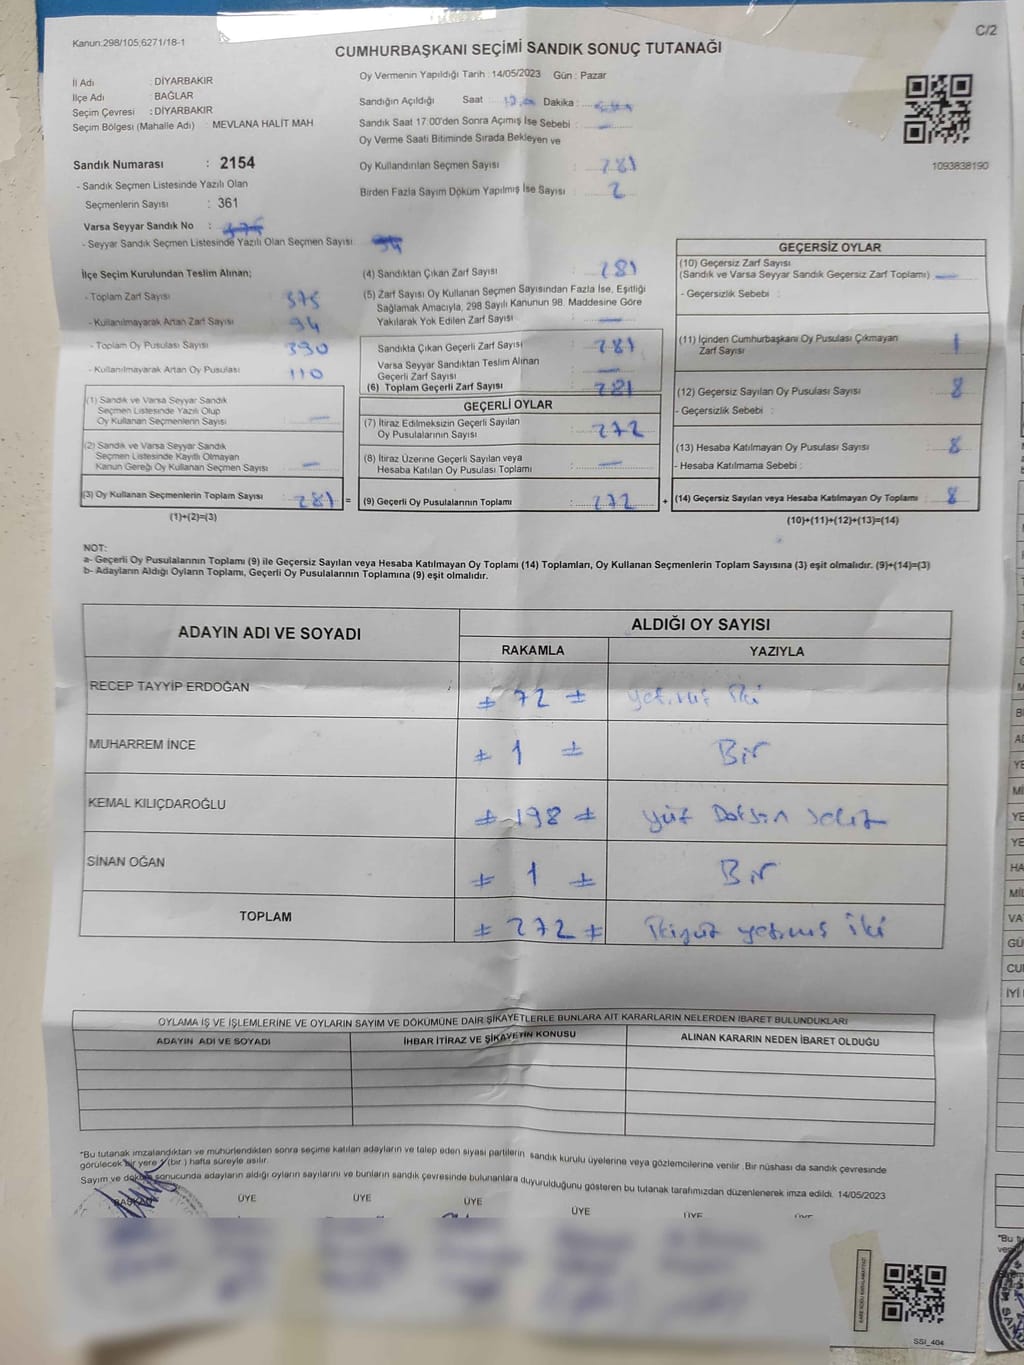 Kanun:298/105,6271/18-1
C/2
CUMHURBAŞKANI SEÇİMİ SANDIK SONUÇ TUTANAĞI
İl Adı : DİYARBAKIR
İlçe Adı : BAĞLAR
Seçim Çevresi : DİYARBAKIR
Seçim Bölgesi (Mahalle Adı) : MEVLANA HALİT MAH
Sandık Numarası : 2154
- Sandık Seçmen Listesinde Yazılı Olan
Seçmenlerin Sayısı : 361
Varsa Seyyar Sandık No :
- Seyyar Sandık Seçmen Listesinde Yazılı Olan Seçmen Sayısı
Oy Vermenin Yapıldığı Tarih : 14/05/2023 Gün : Pazar
Sandığın Açıldığı Saat : Dakika :
Sandık Saat 17:00'den Sonra Açımış İse Sebebi : —
Oy Verme Saati Bitiminde Sırada Bekleyen ve
Oy Kullandırılan Seçmen Sayısı : 281
Birden Fazla Sayım Döküm Yapılmış İse Sayısı : 2
1093838190
İlçe Seçim Kurulundan Teslim Alınan;
- Toplam Zarf Sayısı : 375
- Kullanılmayarak Artan Zarf Sayısı : 94
- Toplam Oy Pusulası Sayısı : 390
- Kullanılmayarak Artan Oy Pusulası : 110
(1) Sandık ve Varsa Seyyar Sandık
Seçmen Listesinde Yazılı Olup
Oy Kullanan Seçmenlerin Sayısı : —
(2) Sandık ve Varsa Seyyar Sandık
Seçmen Listesinde Kayıtlı Olmayan
Kanun Gereği Oy Kullanan Seçmen Sayısı : —
(3) Oy Kullanan Seçmenlerin Toplam Sayısı : 281 =
(1)+(2)=(3)
(4) Sandıktan Çıkan Zarf Sayısı : 281
(5) Zarf Sayısı Oy Kullanan Seçmen Sayısından Fazla İse, Eşitliği
Sağlamak Amacıyla, 298 Sayılı Kanunun 98. Maddesine Göre
Yakılarak Yok Edilen Zarf Sayısı : —
Sandıkta Çıkan Geçerli Zarf Sayısı : 281
Varsa Seyyar Sandıktan Teslim Alınan
Geçerli Zarf Sayısı : —
(6) Toplam Geçerli Zarf Sayısı : 281
GEÇERLİ OYLAR
(7) İtiraz Edilmeksizin Geçerli Sayılan
Oy Pusulalarının Sayısı : 272
(8) İtiraz Üzerine Geçerli Sayılan veya
Hesaba Katılan Oy Pusulası Toplamı : —
(9) Geçerli Oy Pusulalarının Toplamı : 272 +
GEÇERSİZ OYLAR
(10) Geçersiz Zarf Sayısı
(Sandık ve Varsa Seyyar Sandık Geçersiz Zarf Toplamı) —
- Geçersizlik Sebebi :
(11) İçinden Cumhurbaşkanı Oy Pusulası Çıkmayan
Zarf Sayısı : 1
(12) Geçersiz Sayılan Oy Pusulası Sayısı : 8
- Geçersizlik Sebebi :
(13) Hesaba Katılmayan Oy Pusulası Sayısı : 8
- Hesaba Katılmama Sebebi :
(14) Geçersiz Sayılan veya Hesaba Katılmayan Oy Toplamı : 8
(10)+(11)+(12)+(13)=(14)
NOT:
a- Geçerli Oy Pusulalarının Toplamı (9) ile Geçersiz Sayılan veya Hesaba Katılmayan Oy Toplamı (14) Toplamları, Oy Kullanan Seçmenlerin Toplam Sayısına (3) eşit olmalıdır. (9)+(14)=(3)
b- Adayların Aldığı Oyların Toplamı, Geçerli Oy Pusulalarının Toplamına (9) eşit olmalıdır.
ADAYIN ADI VE SOYADI
ALDIĞI OY SAYISI
RAKAMLA YAZIYLA
RECEP TAYYİP ERDOĞAN 72 yetmiş iki
MUHARREM İNCE 1 Bir
KEMAL KILIÇDAROĞLU 198 yüz Doksan sekiz
SİNAN OĞAN 1 Bir
TOPLAM 272 ikiyüz yetmiş iki
OYLAMA İŞ VE İŞLEMLERİNE VE OYLARIN SAYIM VE DÖKÜMÜNE DAİR ŞİKAYETLERLE BUNLARA AİT KARARLARIN NELERDEN İBARET BULUNDUKLARI
ADAYIN ADI VE SOYADI İHBAR İTİRAZ VE ŞİKAYETİN KONUSU ALINAN KARARIN NEDEN İBARET OLDUĞU
*Bu tutanak imzalandıktan ve mühürlendikten sonra seçime katılan adayların ve talep eden siyasi partilerin sandık kurulu üyelerine veya gözlemcilerine verilir .Bir nüshası da sandık çevresinde
görülecek bir yere 1 (bir ) hafta süreyle asılır.
Sayım ve döküm sonucunda adayların aldığı oyların sayılarını ve bunların sandık çevresinde bulunanlara duyurulduğunu gösteren bu tutanak tarafımızdan düzenlenerek imza edildi. 14/05/2023
BAŞKAN ÜYE ÜYE ÜYE ÜYE ÜYE ÜYE
SSI_404